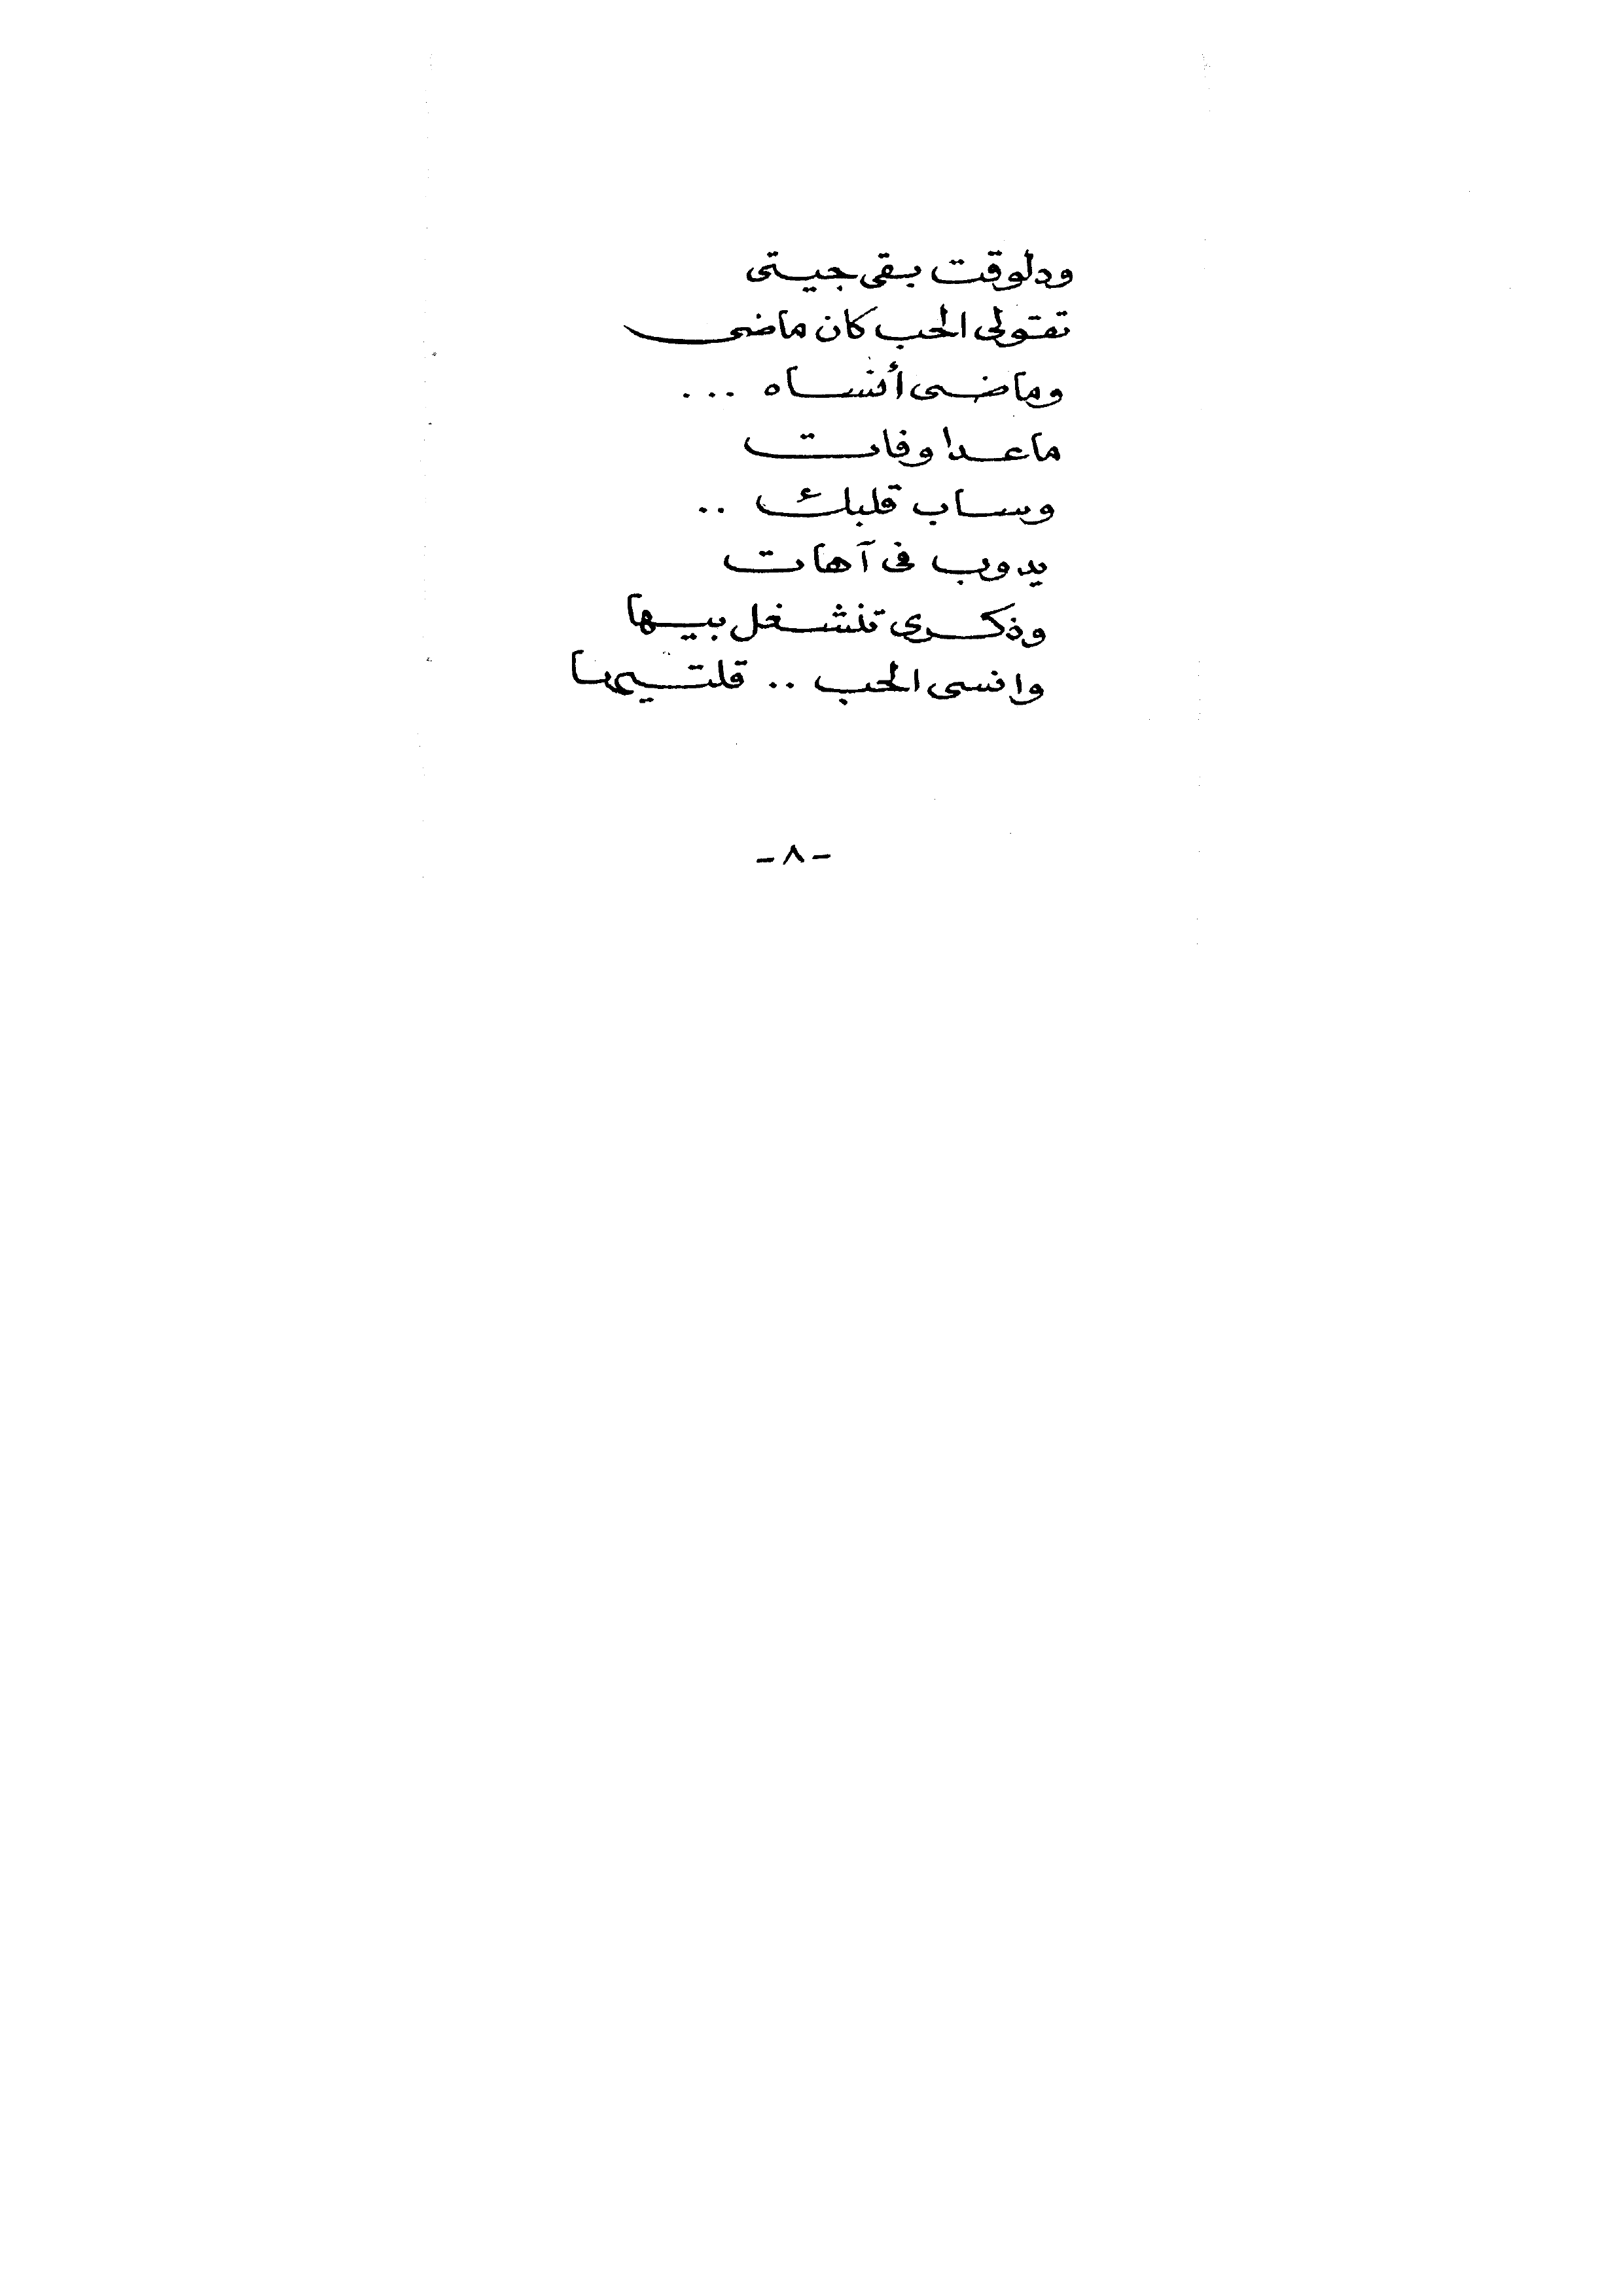 ودلوقت بقى جيتى
تقولى الحب كان ماضى
وماضى أنساه ...
ماعدا وفات
وساب قلبك ..
يدوب فى آهات
وذكرى تنشغل بيها
وانسى الحب .. قلتيها
-٨-